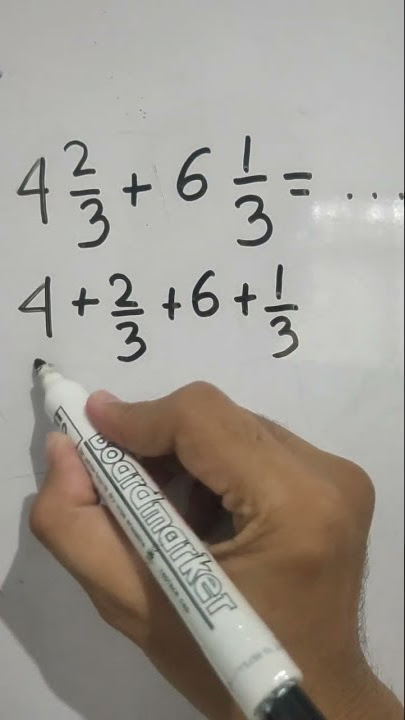 4 2/3 + 6 1/3 = ...
4 + 2/3 + 6 + 1/3
Boardmarker